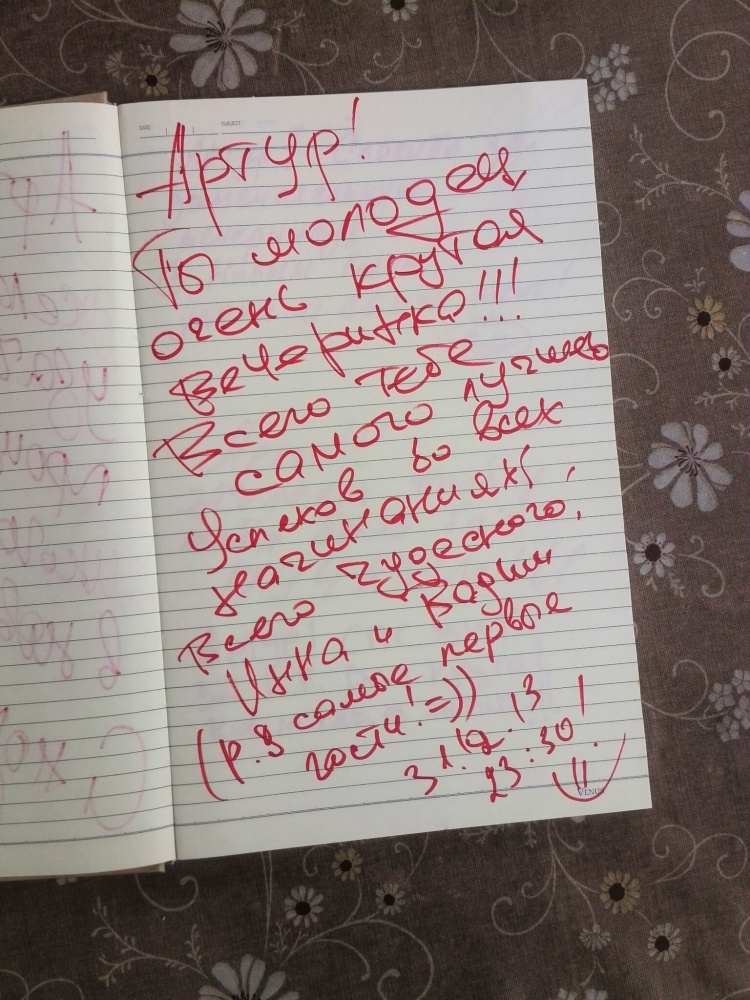 DATE SUBJECT
Артур!
Ты молодец,
очень крутая
вечеринка!!!
Всего тебе
самого лучшего
Успехов во всех
начинаниях!
Всего чудесного,
Инна и Вадим
(P.S самые первые
гости! =))
31.12.13
23:30!
VENUS